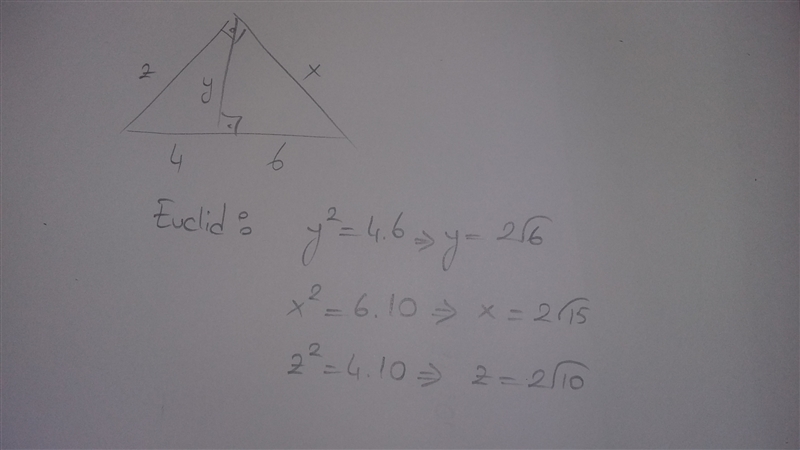 z
x
y
4
6
Euclid: y²=4.6⇒y=2√6
x²=6.10⇒x=2√15
z²=4.10⇒z=2√10